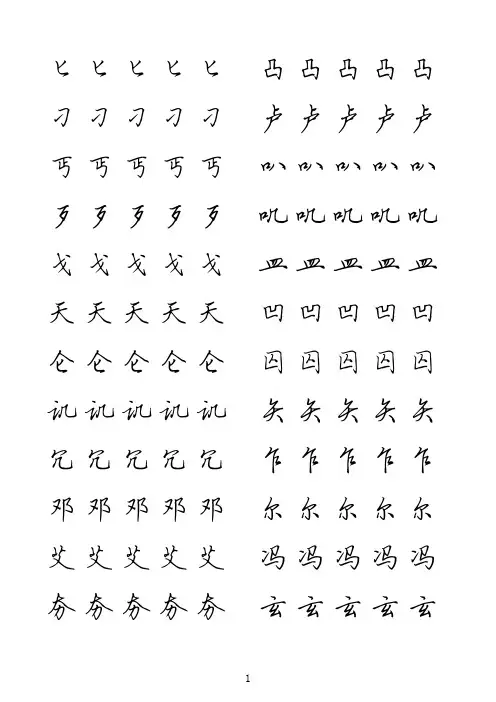 匕匕匕匕匕 凸凸凸凸凸
刁刁刁刁刁 卢卢卢卢卢
丐丐丐丐丐 叭叭叭叭叭
歹歹歹歹歹 叽叽叽叽叽
戈戈戈戈戈 皿皿皿皿皿
夭夭夭夭夭 凹凹凹凹凹
仑仑仑仑仑 囚囚囚囚囚
讥讥讥讥讥 矢矢矢矢矢
冗冗冗冗冗 乍乍乍乍乍
邓邓邓邓邓 尔尔尔尔尔
艾艾艾艾艾 冯冯冯冯冯
夯夯夯夯夯 玄玄玄玄玄
1